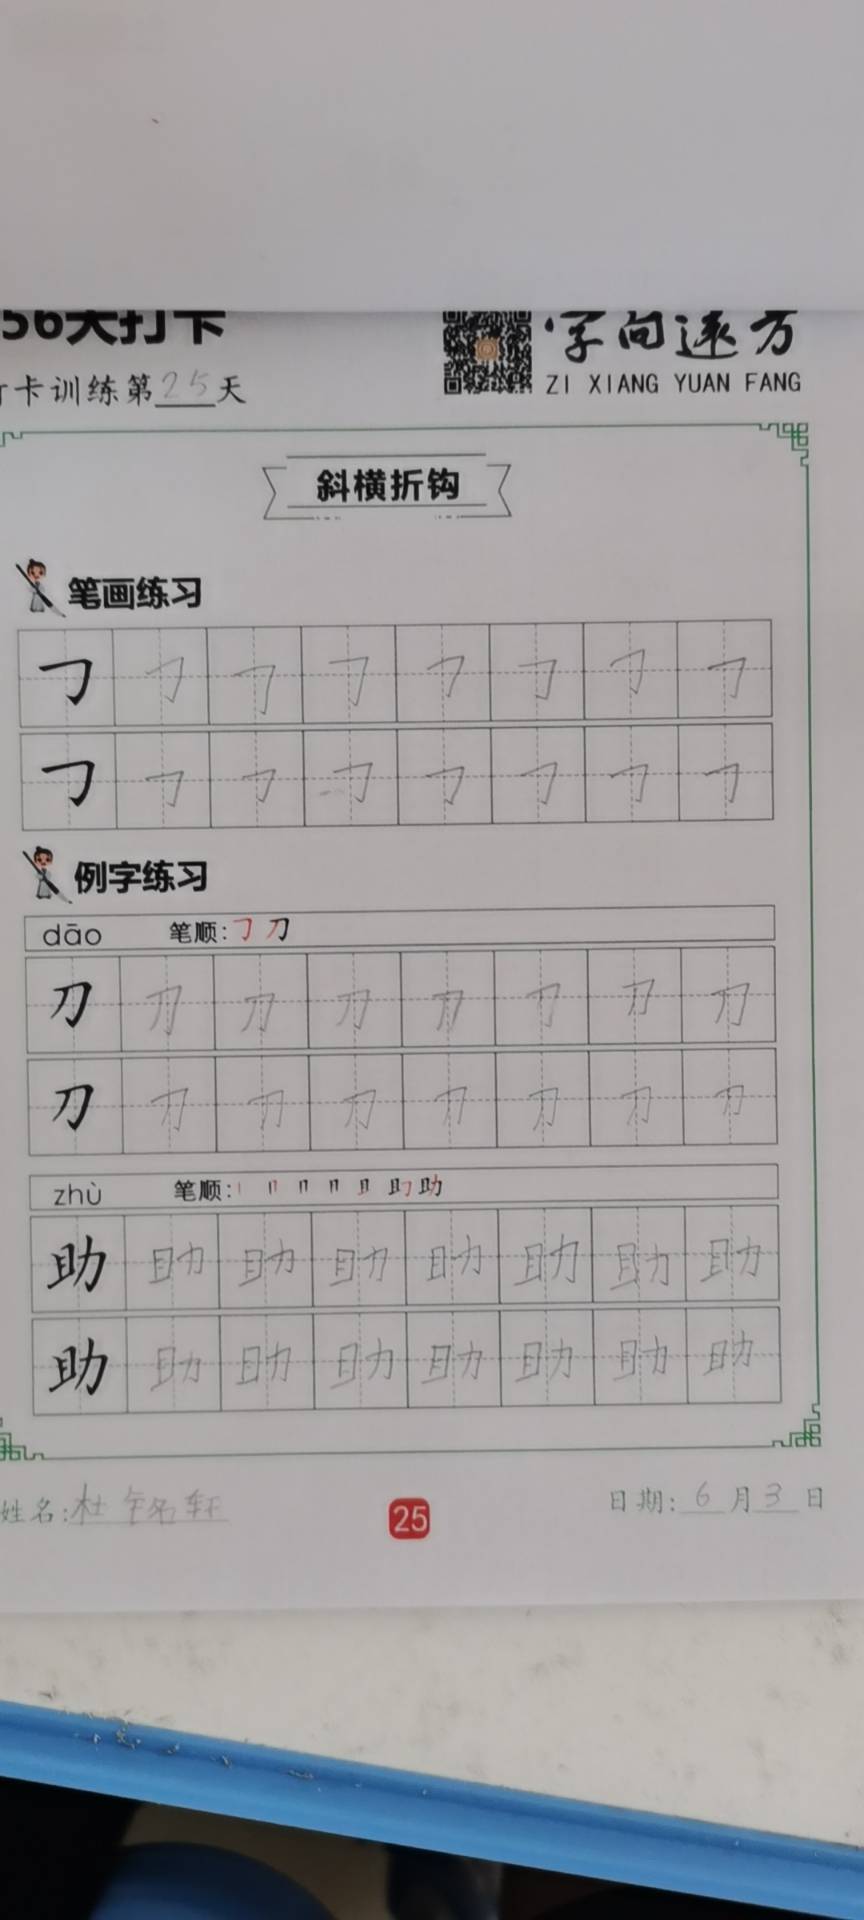 56天打卡
字向远方
ZI XIANG YUAN FANG
打卡训练第25天
斜横折钩
笔画练习
㇆ ㇆ ㇆ ㇆ ㇆ ㇆ ㇆ ㇆
㇆ ㇆ ㇆ ㇆ ㇆ ㇆ ㇆ ㇆
例字练习
dāo 笔顺: ㇆ 刀
刀 刀 刀 刀 刀 刀 刀 刀
刀 刀 刀 刀 刀 刀 刀 刀
zhù 笔顺: 助
助 助 助 助 助 助 助 助
助 助 助 助 助 助 助 助
姓名:杜铭轩
25
日期:6月3日